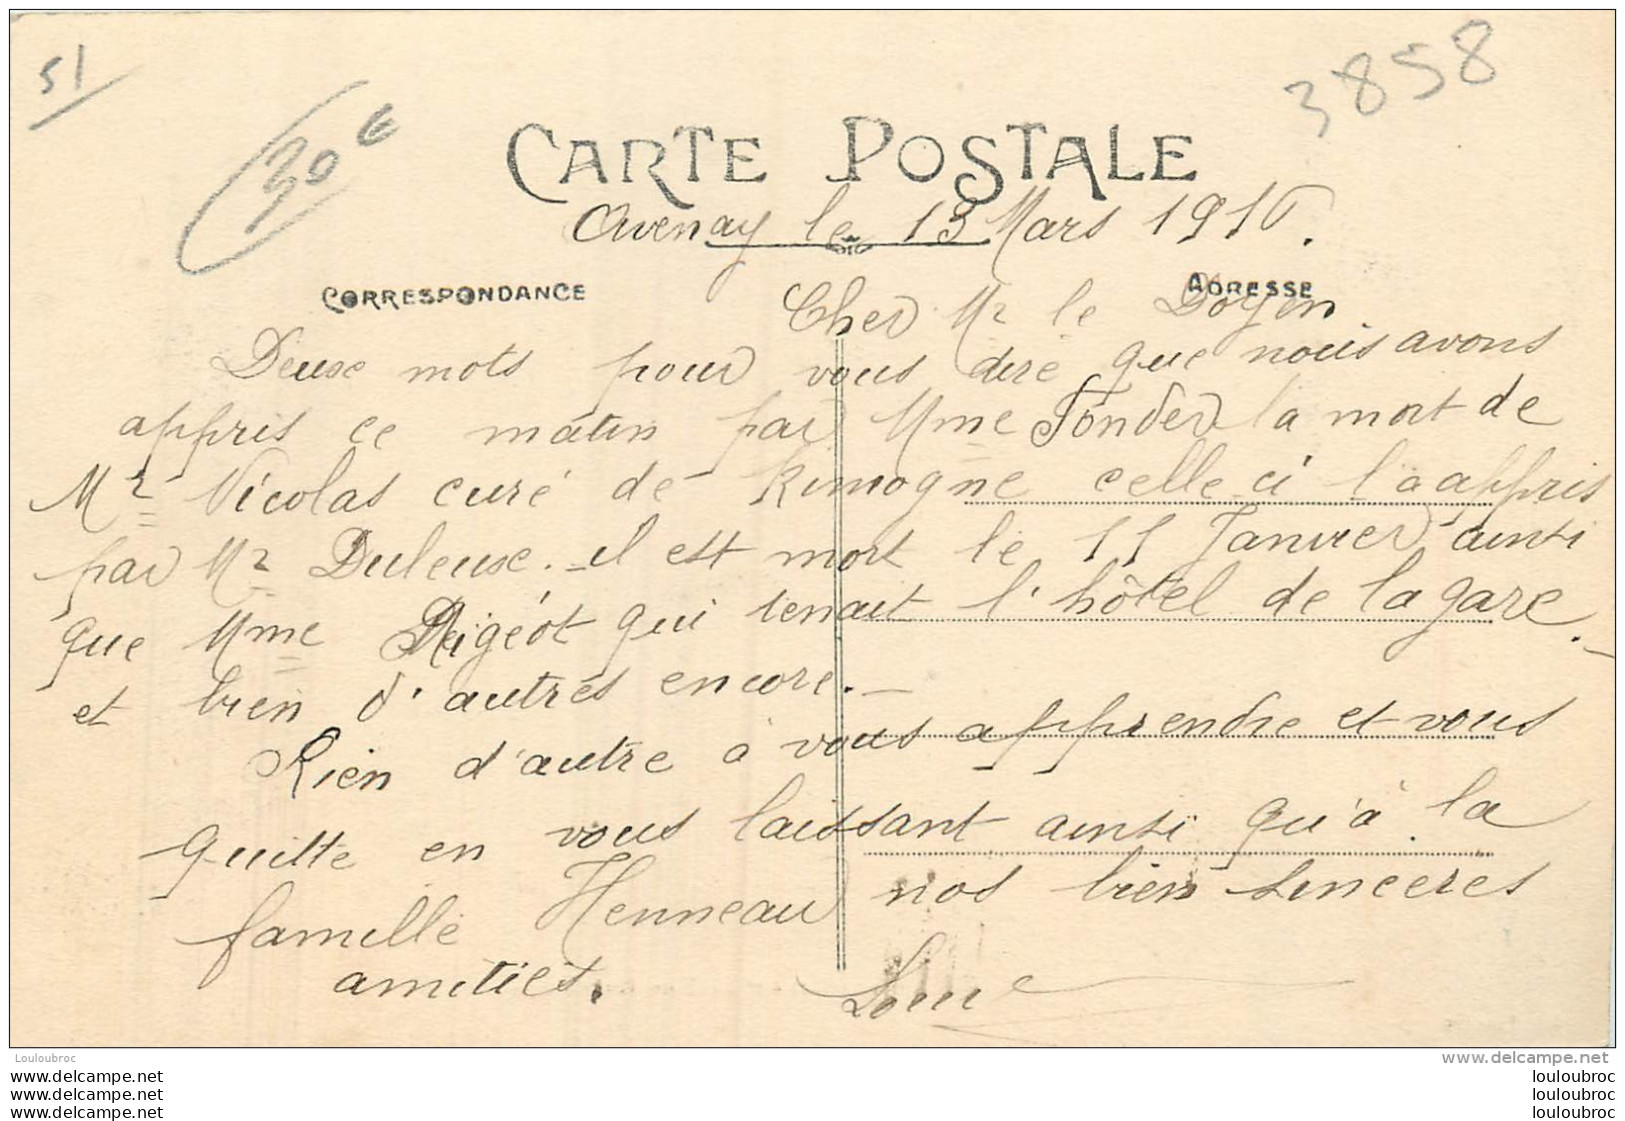 51
30 €
3858
CARTE POSTALE
Avenay le 13 Mars 1916.
CORRESPONDANCE
ADRESSE
Cher Mr le Doyen
Deux mots pour vous dire que nous avons
appris ce matin par Mme Fonder la mort de
Mr Nicolas curé de Rimogne celle-ci l'a appris
par Mr Duleux. - il est mort le 11 Janvier ainsi
que Mme Rigéot qui tenait l'hôtel de la gare. -
et bien d'autres encore. -
Rien d'autre à vous apprendre et vous
quitte en vous laissant ainsi qu'à la
famille Henneau nos bien sincères
amitiés.
Louloubroc
www.delcampe.net
www.delcampe.net louloubroc
www.delcampe.net louloubroc
www.delcampe.net louloubroc